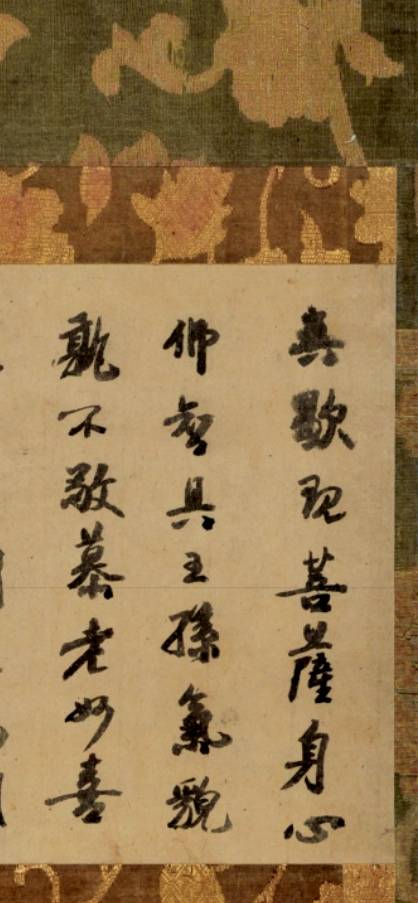 真歇現菩薩身心
佛智具王孫氣貌
孰不敬慕老妙喜